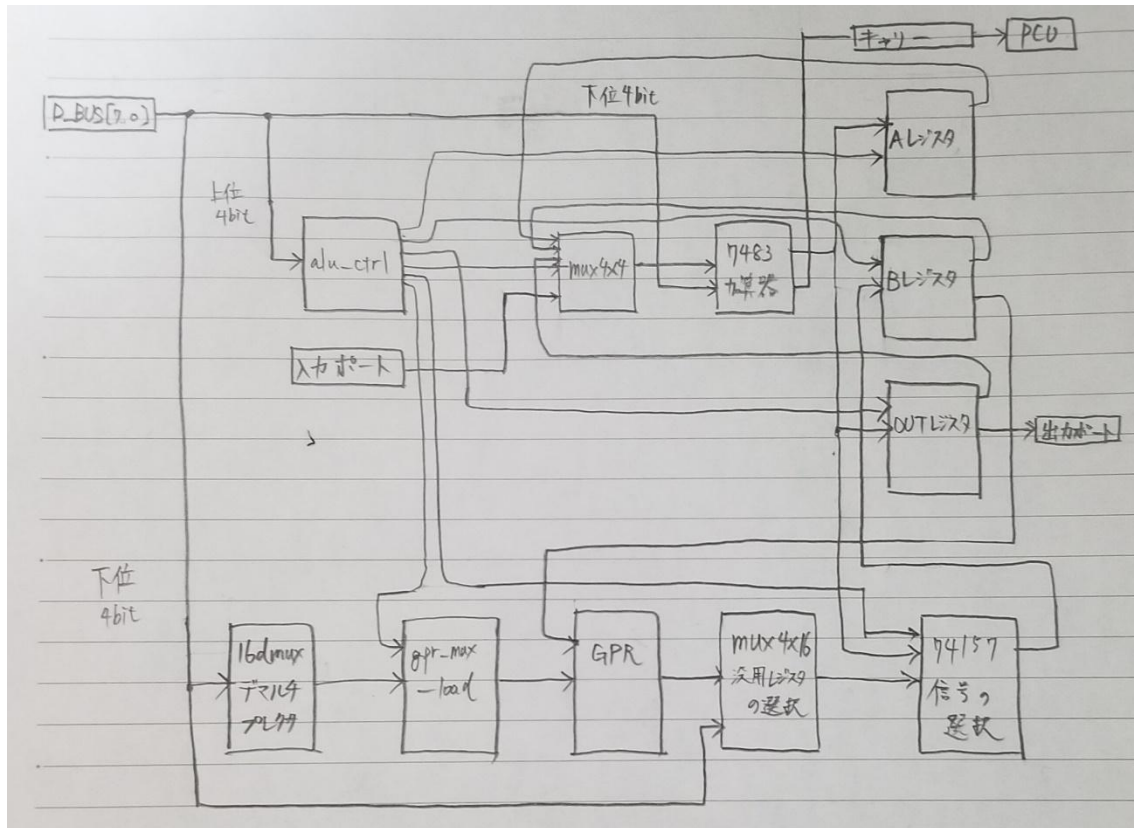 キャリー
PCU
D_BUS[7.0]
下位4bit
Aレジスタ
上位
4bit
alu_ctrl
mux4x4
7483
加算器
Bレジスタ
入力ポート
OUTレジスタ
出力ポート
下位
4bit
16dmux
デマルチ
プレクサ
gpr_mux
-load
GPR
mux4x16
汎用レジスタ
の選択
74157
信号の
選択